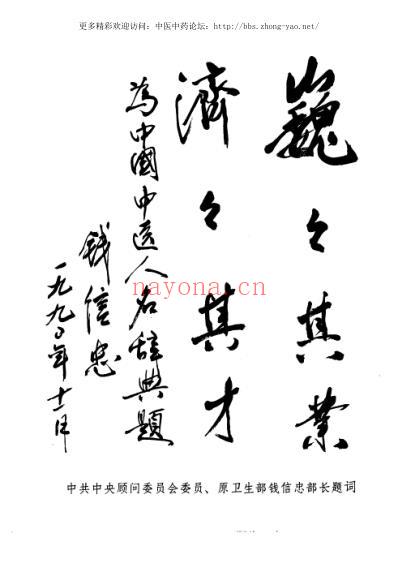 更多精彩欢迎访问：中医中药论坛：http://bbs.zhong-yao.net/
巍々其業
濟々其才
為中國中医人名辞典題
钱信忠
一九九〇年十一月
nayona.cn
中共中央顾问委员会委员、原卫生部钱信忠部长题词